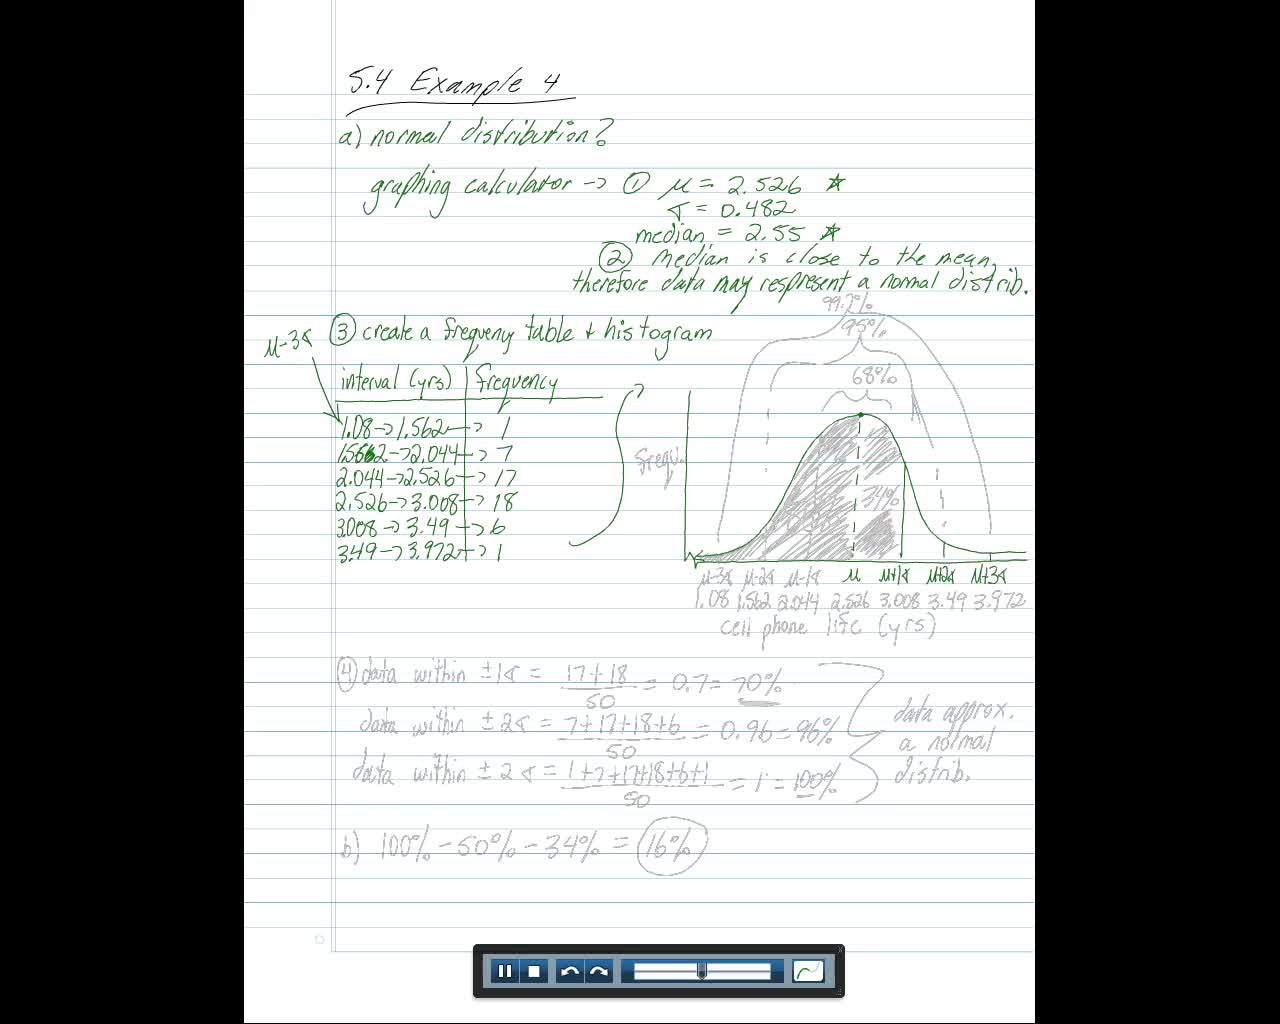 5.4 Example 4
a) normal distribution?
graphing calculator -> ① μ = 2.526 ☆
σ = 0.482
median = 2.55 ☆
② median is close to the mean,
therefore data may respresent a normal distrib.
③ create a frequency table + histogram
μ-3σ
interval (yrs) frequency
1.08 -> 1.562 -> 1
1.562 -> 2.044 -> 7
2.044 -> 2.526 -> 17
2.526 -> 3.008 -> 18
3.008 -> 3.49 -> 6
3.49 -> 3.972 -> 1
99.7%
95%
68%
frequ.
34%
μ-3σ μ-2σ μ-1σ μ μ+1σ μ+2σ μ+3σ
1.08 1.562 2.044 2.526 3.008 3.49 3.972
cell phone life (yrs)
④ data within ±1σ = 17+18/50 = 0.7 = 70%
data within ±2σ = 7+17+18+6/50 = 0.96 = 96%
data within ±2σ = 1+7+17+18+6+1/50 = 1 = 100%
data approx.
a normal
distrib.
b) 100% - 50% - 34% = 16%